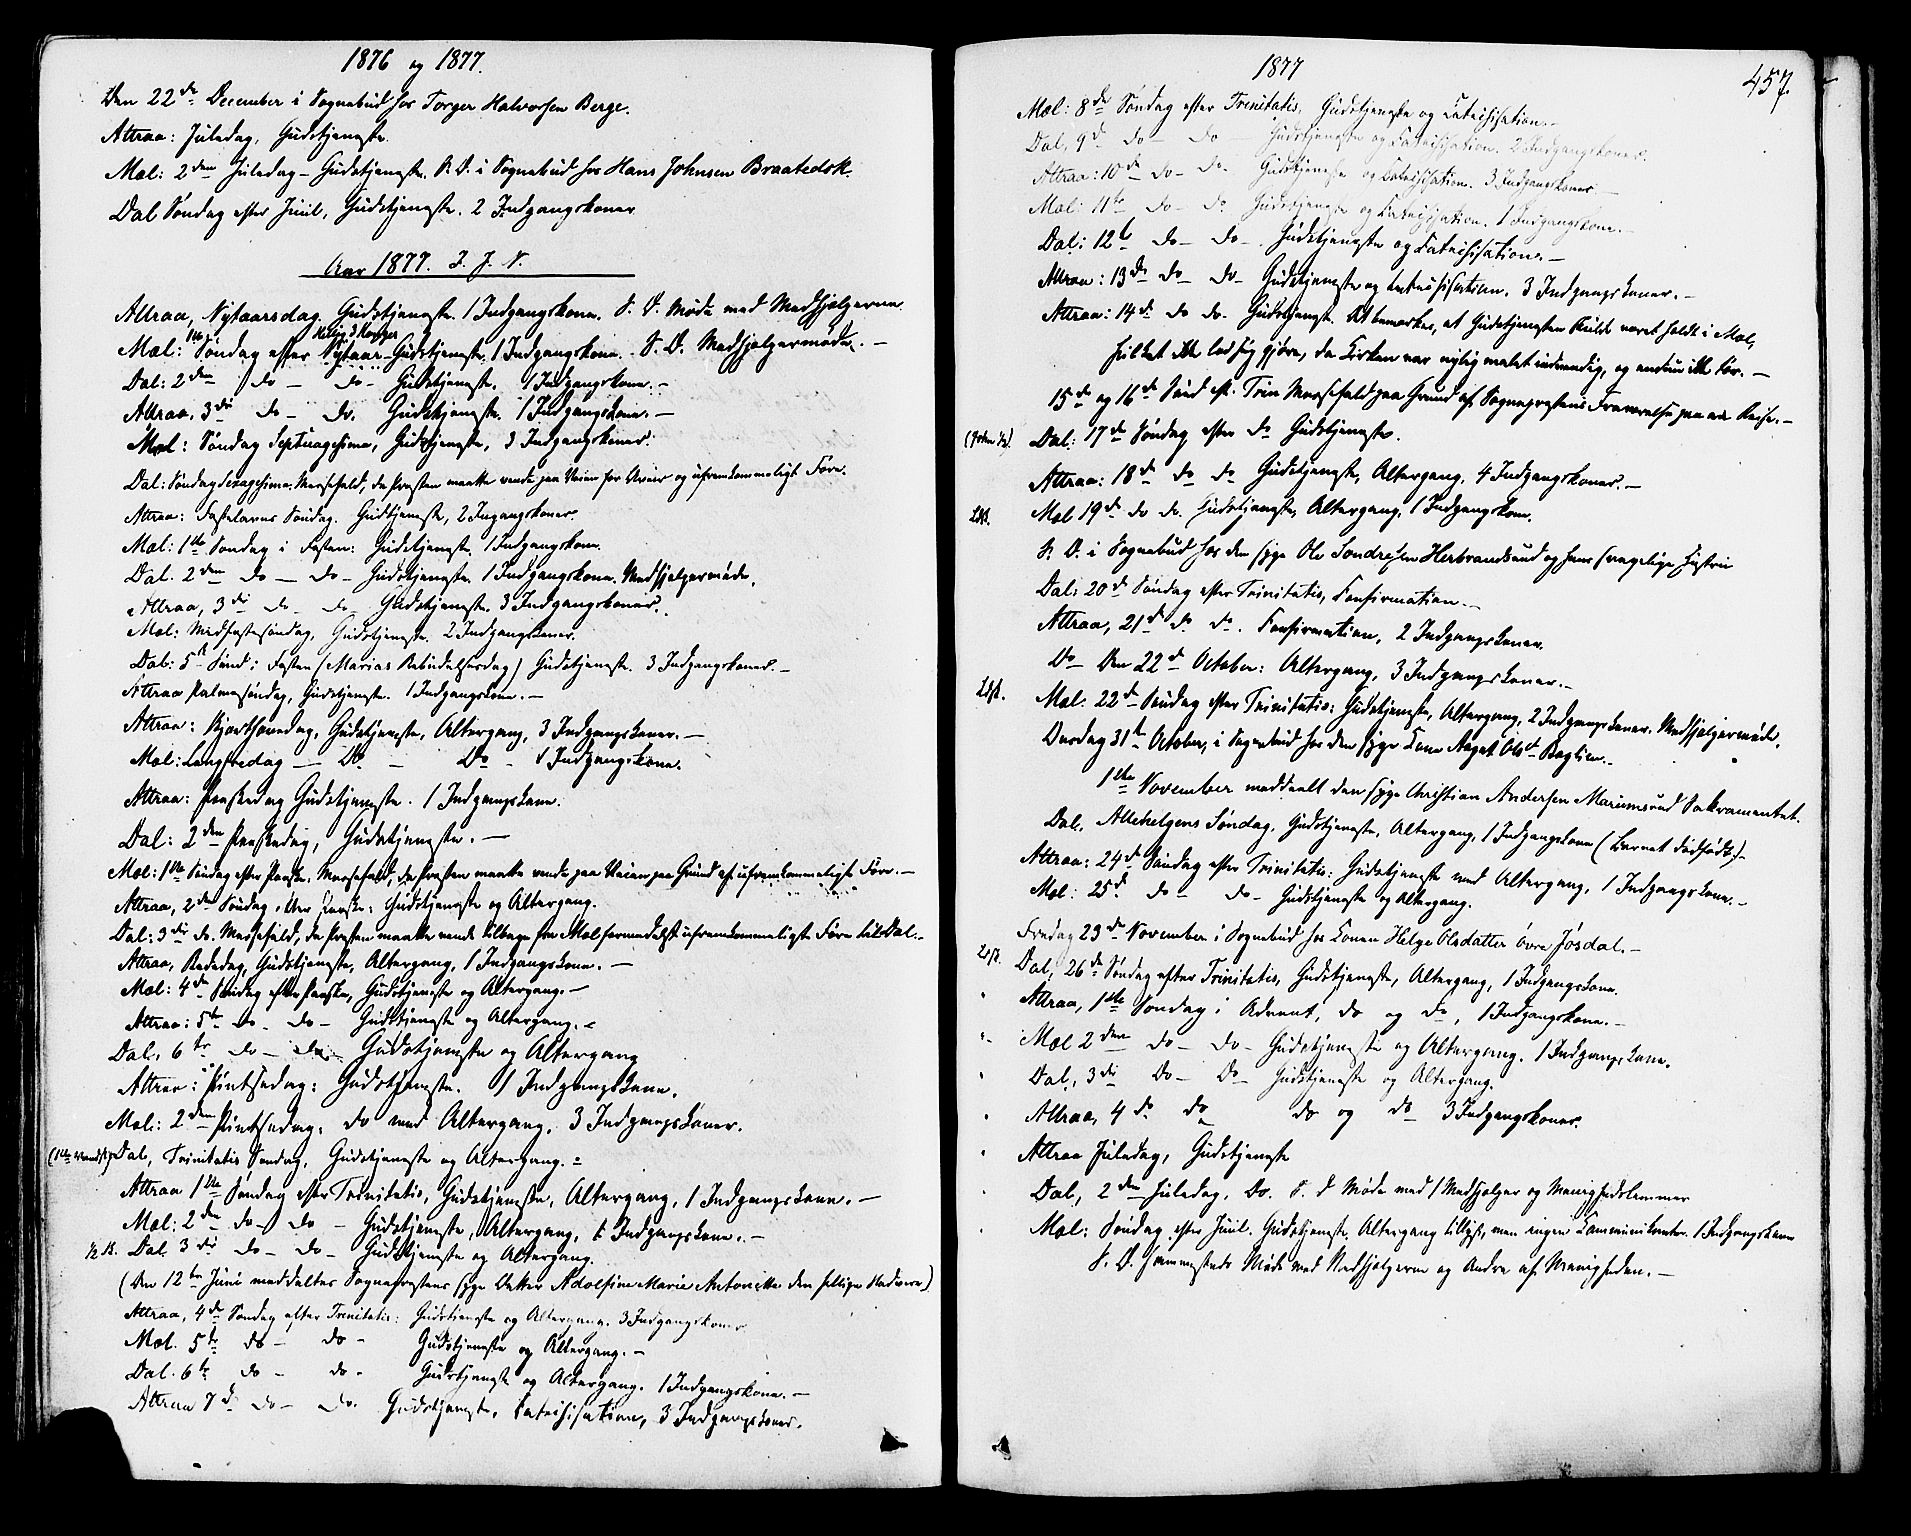 1876 og 1877.
Den 22de December i Sognebud hos Torger Halvorsen Berge.
Attraa: Juledag, Gudstjeneste.
Mæl: 2den Juledag – Gudstjeneste. S. D. i Sognebud hos Hans Johnsen Braatedok.
Dal Søndag efter Juul, Gudstjeneste. 2 Indgangskoner
Aar 1877. I. J. N.
Attraa, Nytaarsdag. Gudstjeneste. 1 Indgangskone. S. D. Møde med Medhjælperne.
Hellig 3 Konger
Mæl: 1ste Søndag efter Nytaar – Gudstjeneste. 1 Indgangskone. – S. D. Medhjælpermøde. –
Dal: 2den do – do – Gudstjeneste. 1 Indgangskone. –
Attraa, 3die do – do. Gudstjeneste. 1 Indgangskone. –
Mæl: Søndag Septuagesima, Gudstjeneste, 3 Indgangskoner.
Dal: Søndag Sexagesima. Messefald, da Præsten maatte vende paa Veien for Uveir og ufremkommeligt Føre.
Attraa: Fastelavns Søndag. Gudstjeneste, 2 Ingangskoner.
Mæl: 1ste Søndag i Fasten: Gudstjeneste. 1 Indgangskone.
Dal. 2den do – do – Gudstjeneste. 1 Indgangskone. Medhjælpermøde.
Attraa, 3die do – do – Gudstjeneste. 3 Indgangskoner.
Mæl: Midfastesøndag, Gudstjeneste. 2 Indgangskoner.
Dal: 5te Sønd: i Fasten (Marias Bebudelsesdag) Gudstjeneste. 3 Indgangskoner. –
Attraa Palmesøndag, Gudstjeneste. 1 Indgangskone. –
Attraa: Skjærthorsdag, Gudstjeneste, Altergang, 3 Indgangskoner. –
Mæl: Langfredag – Do – Do – 1 Indgangskone.
Attraa: Paaskedag Gudstjeneste. 1 Indgangskone.
Dal: 2den Paaskedag, Gudstjeneste. –
Mæl: 1ste Søndag efter Paaske, Messefald, da Præsten maatte vende paa Veien paa Grund af ufremkommeligt Føre. –
Attraa, 2den Søndag efter Paaske: Gudstjeneste og Altergang.
Dal: 3die do. Messefald, da Præsten maatte vende tilbage fra Mæl formedelst ufremkommeligt Føre til Dal. –
Attraa, Bededag, Gudstjeneste, Altergang, 1 Indgangskone. –
Mæl: 4de Søndag efter Paaske, Gudstjeneste og Altergang. –
Attraa: 5te do – do – Gudstjeneste og Altergang. –
Dal, 6te do – do – Gudstjeneste og Altergang
Attraa: Pintsedag: Gudstjeneste. 1 Indgangskone.
Mæl: 2den Pintsedag: do med Altergang, 3 Indgangskoner.
Dal, Trinitatis Søndag, Gudstjeneste og Altergang. –
Attraa 1ste Søndag efter Trinitatis, Gudstjeneste, Altergang, 1 Indgangskone. –
Mæl: 2den do – do – Gudstjeneste, Altergang, 1 Indgangskone. –
Dal. 3die do – do – Gudstjeneste og Altergang.
(Den 12te Juni meddeltes Sognepræstens syge Datter Adolfine Marie Antonette den hellige Nadvere)
Attraa, 4de Søndag efter Trinitatis: Gudstjeneste og Altergang. 3 Indgangskoner
Mæl. 5te do – do – Gudstjeneste og Altergang. –
Dal. 6te do – do – Gudstjeneste og Altergang. 1 Indgangskone. –
Attraa 7de do – do. Gudstjeneste, Katechisation, 3 Indgangskoner.
1877
457.
Mæl: 8de Søndag efter Trinitatis, Gudstjeneste og Catechisation. –
Dal, 9de do – do Gudstjeneste og Catechisation. 2 Indgangskoner.
Attraa: 10de do – do. Gudstjeneste og Catechisation. 3 Indgangskoner. –
Mæl: 11te do – do Gudstjeneste og Catechisation. 1 Indgangskone. –
Dal: 12te do – do – Gudstjeneste og Catechisation. –
Attraa: 13de do – do – Gudstjeneste og Catechisation. 3 Indgangskoner. –
Attraa: 14de do do. Gudstjeneste. At bemærkes, at Gudstjenesten skulde været holdt i Mæl,
hvilket ikke lod sig gjøre, da Kirken var nylig malet indvendig, og endnu ikke tør. –
15de og 16de Sønd. eft. Trin Messefald paa Grund af Sognepræstens Fraværelse paa en Reise. –
Dal: 17de Søndag efter do Gudstjeneste.
Attraa: 18de do do Gudstjeneste, Altergang, 4 Indgangskoner. –
Mæl 19de do do. Gudstjeneste, Altergang, 1 Indgangskone.
S. D. i Sognebud hos den syge Ole Sondresen Herbrandsund og hans svagelige Hustru
Dal: 20de Søndag efter Trinitatis, Confirmation. –
Attraa, 21de do do. Confirmation, 2 Indgangskoner.
Do – Den 22de October: Altergang, 3 Indgangskoner. –
Mæl. 22de Søndag efter Trinitatis: Gudstjeneste, Altergang, 2 Indgangskoner. Medhjælpermøde.
Onsdag 31te October, i Sognebud hos den syge Kone Aaget Olsdt Bøglien. –
1ste November meddeelt den syge Christian Andersen Mariussund Sakramentet.
Dal, Allehelgens Søndag, Gudstjeneste, Altergang, 1 Indgangskone (Barnet dødfødt.) –
Attraa: 24de Søndag efter Trinitatis: Gudstjeneste med Altergang, 1 Indgangskone. –
Mæl: 25de do – do – Gudstjeneste og Altergang.
Fredag 23de November i Sognebud hos Konen Helge Olsdatter øvre Jøsdal. –
Dal, 26de Søndag efter Trinitatis, Gudstjeneste, Altergang, 1 Indgangskone.
Attraa, 1ste Søndag i Advent, do og do, 1 Indgangskone. –
Mæl 2den do – do – Gudstjeneste og Altergang. 1 Indgangskone.
Dal, 3die Do – Do – Gudstjeneste og Altergang.
Attraa, 4de do do og do 3 Indgangskoner.
Attraa Juledag, Gudstjeneste
Dal, 2den Juledag, Do. S. d Møde med 1 Medhjælper og Menighedslemmer
Mæl: Søndag efter Juul. Gudstjeneste, Altergang tillyst, men ingen Communikanter. 1 Indgangskone
S. D. sammesteds Møde med Medhjælperne og Andre af Menigheden. –